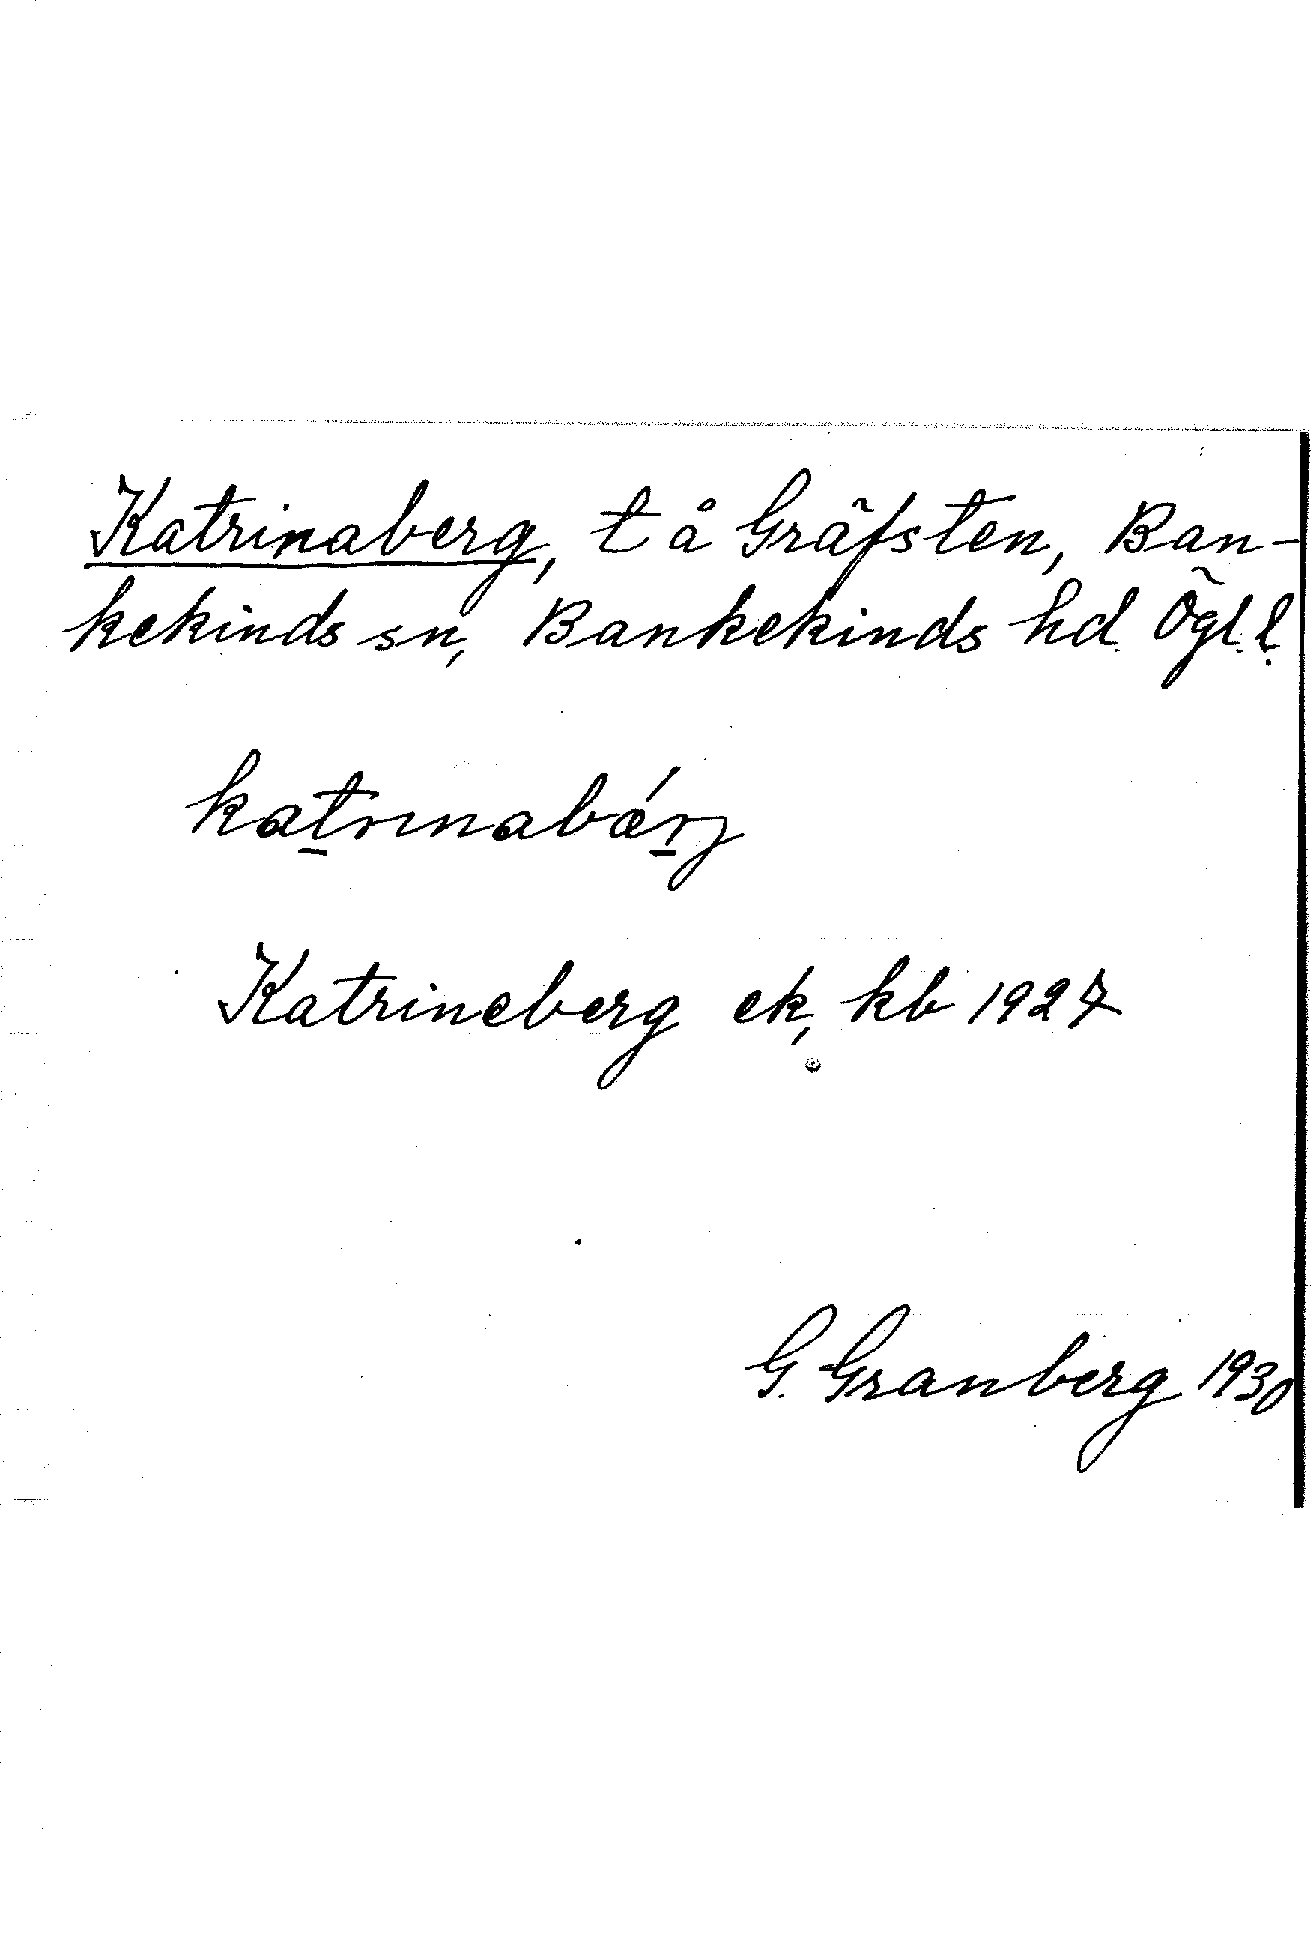 Katrinaberg, t å Gräfsten, Ban-
kekinds sn, Bankekinds hd. Ögl. l.
kat̠rınabǽr̠j
Katrineberg ek, kb 1927
G. Granberg 1930